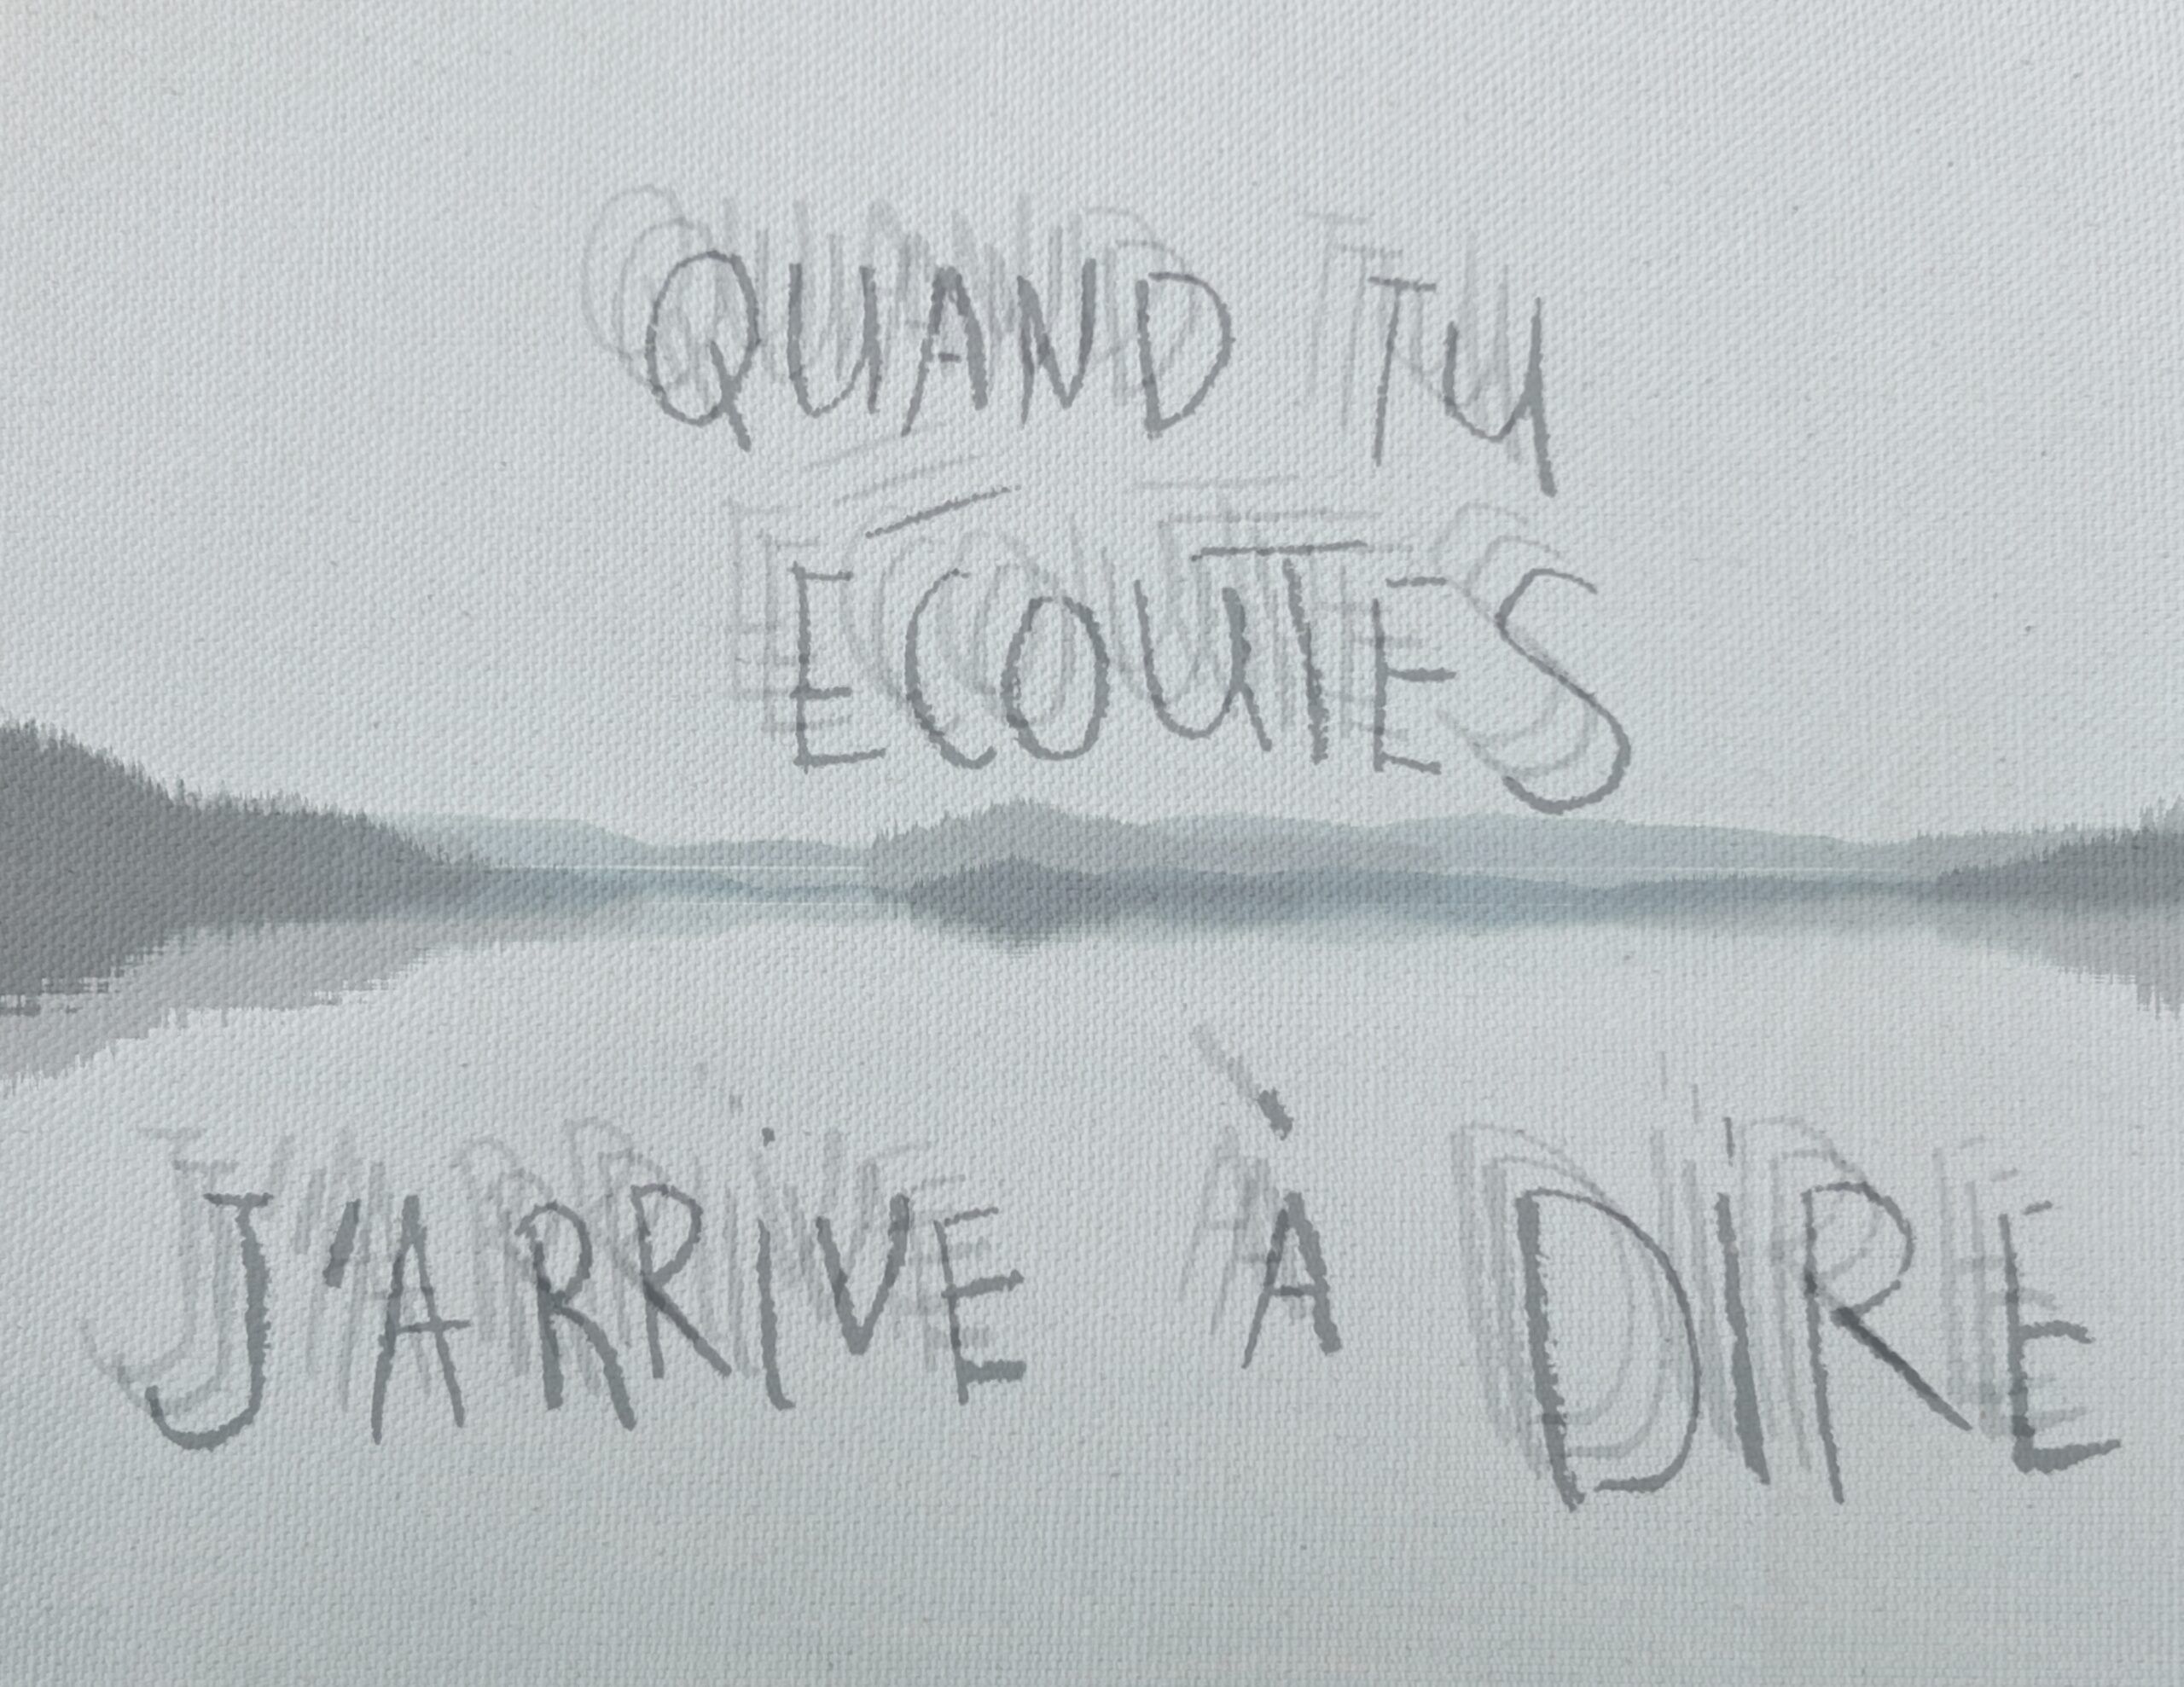 QUAND TU
ÉCOUTES
J'ARRIVE À DIRE